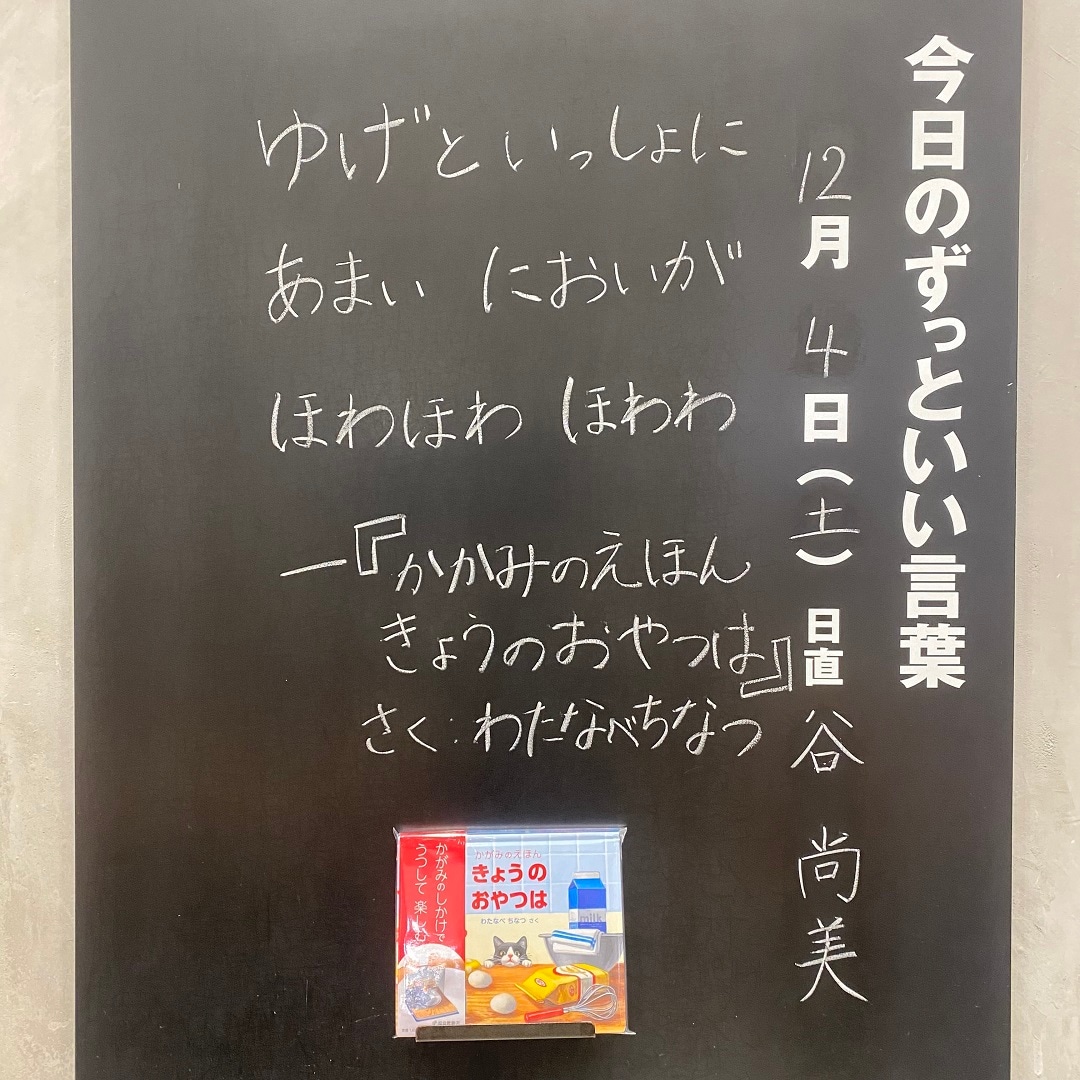 今日のずっといい言葉
12月 4日(土) 日直 谷 尚美
ゆげといっしょに
あまい においが
ほわほわ ほわわ
―『かがみのえほん
きょうのおやつは』
さく:わたなべちなつ
かがみのしかけで
うつして 楽しむ
かがみのえほん
きょうの
おやつは
わたなべ ちなつ さく
milk